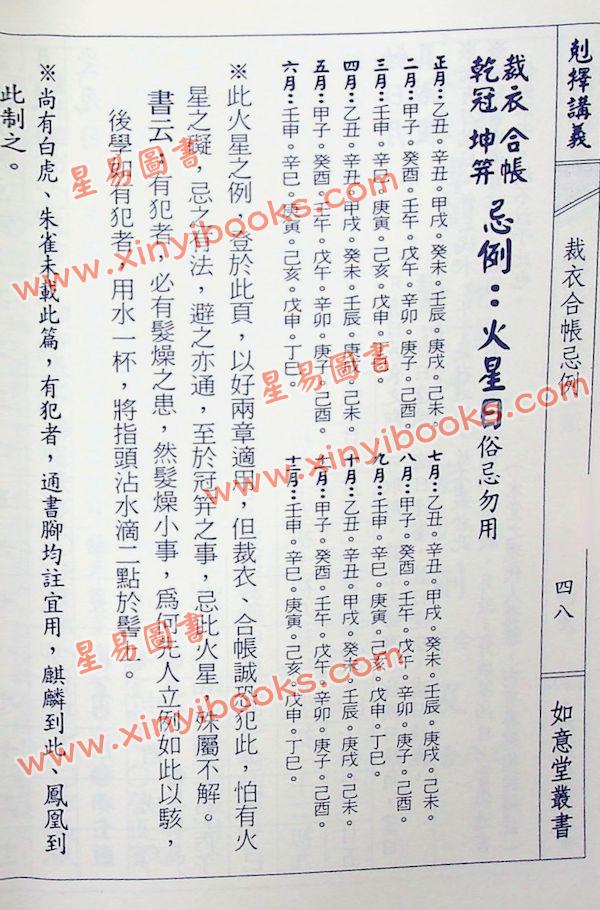 剋擇講義
裁衣合帳忌例
四八
如意堂叢書
裁衣 合帳
乾冠 坤笄
忌例：火星日俗忌勿用
正月：乙丑。辛丑。甲戌。癸未。壬辰。庚戌。己未。
二月：甲子。癸酉。壬午。戊午。辛卯。庚子。己酉。
三月：壬申。辛巳。庚寅。己亥。戊申。丁巳。
四月：乙丑。辛丑。甲戌。癸未。壬辰。庚戌。己未。
五月：甲子。癸酉。壬午。戊午。辛卯。庚子。己酉。
六月：壬申。辛巳。庚寅。己亥。戊申。丁巳。
七月：乙丑。辛丑。甲戌。癸未。壬辰。庚戌。己未。
八月：甲子。癸酉。壬午。戊午。辛卯。庚子。己酉。
九月：壬申。辛巳。庚寅。己亥。戊申。丁巳。
十月：乙丑。辛丑。甲戌。癸未。壬辰。庚戌。己未。
十一月：甲子。癸酉。壬午。戊午。辛卯。庚子。己酉。
十二月：壬申。辛巳。庚寅。己亥。戊申。丁巳。
※此火星之例，登於此頁，以好兩章適用，但裁衣、合帳誠恐犯此，怕有火
星之礙，忌之有法，避之亦通，至於冠笄之事，忌此火星，殊屬不解。
書云：有犯者，必有髮燥之患，然髮燥小事，爲何先人立例如此以駭，
後學如有犯者，用水一杯，將指頭沾水滴二點於髻上。
※尚有白虎、朱雀未載此篇，有犯者，通書腳均註宜用，麒麟到此、鳳凰到
此制之。
星易圖書
www.xinyibooks.com
星易圖書
www.xinyibooks.com
星易圖書
www.xinyibooks.com